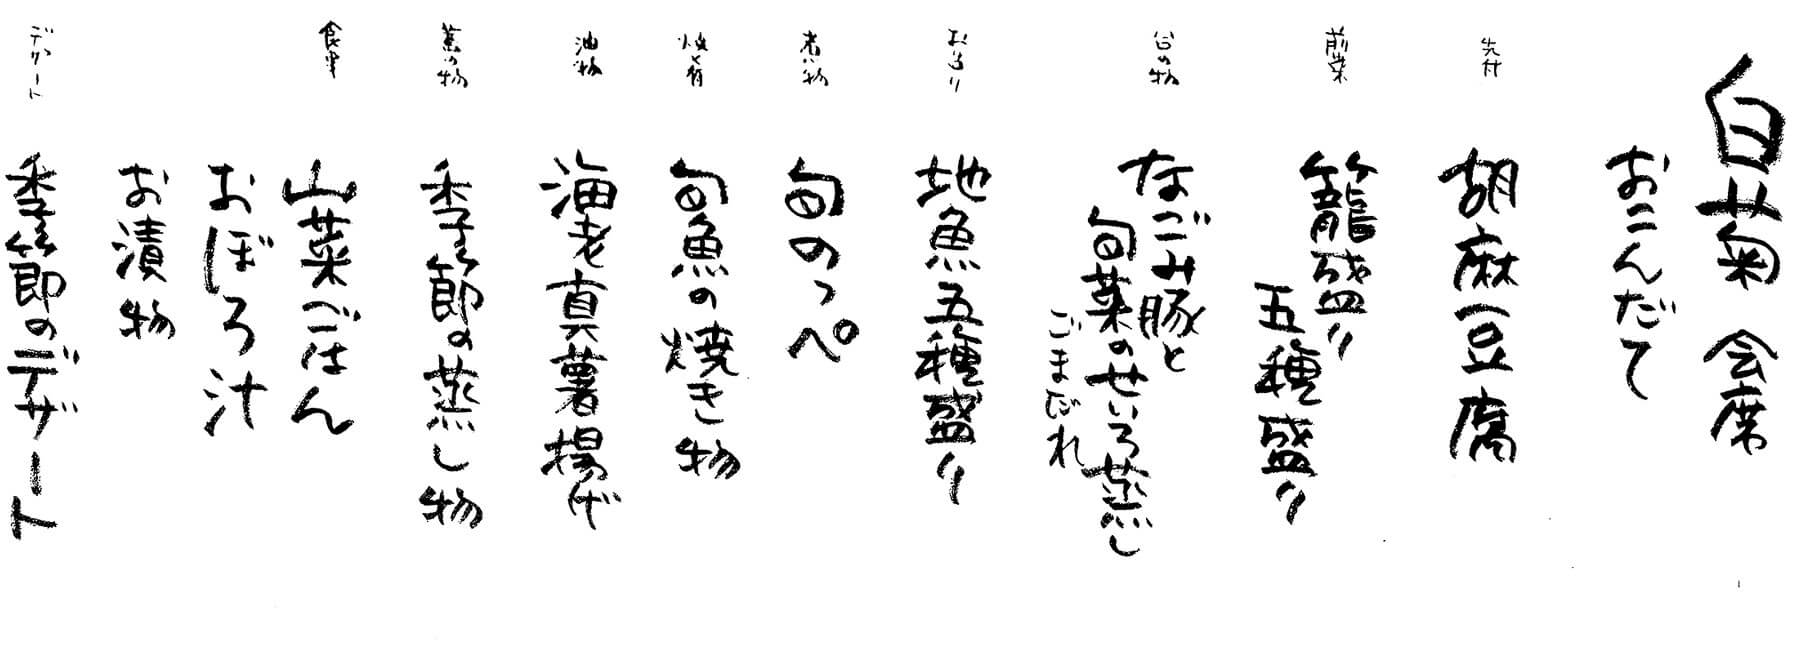 白菊 会席
おこんだて
先付
胡麻豆腐
前菜
籠盛り
五種盛り
台の物
なごみ豚と
旬菜のせいろ蒸し
ごまだれ
お造り
地魚五種盛り
煮物
旬のっぺ
焼肴
旬魚の焼き物
油物
海老真薯揚げ
蒸し物
季節の蒸し物
食事
山菜ごはん
おぼろ汁
お漬物
デザート
季節のデザート